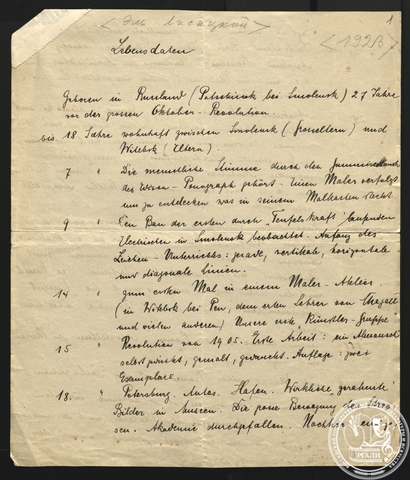 <Эль Лисицкий>
1
<1928>
Lebensdaten
Geboren in Russland (Potschinok bei Smolensk) 27 Jahre
vor der grossen Oktober-Revolution.
bis 18 Jahre wohnhaft zwischen Smolensk (Grosseltern) und
Witebsk (Eltern).
7 " Die menschliche Stimme durch den
des Phonograph gehört. Einen Maler verfolgt
um zu entdecken was in seinem Malkasten steckt.
9 " Den Bau der ersten durch Teufelskraft laufenden
Electrischen in Smolensk beobachtet. Anfang des
Zeichen-Unterrichts: gerade, vertikale, horizontale
und diagonale Linien.
14 " Zum ersten Mal in einem Maler-Atelier
(in Witebsk bei Pen, dem ersten Lehrer von Chagall
und vielen anderen) Unsere erste Künstler-Gruppe
15 " Revolution von 1905. Erste Arbeit: ein Almanach
selbst gedichtet, gemalt, gewacht. Auflage: zwei
Exemplare.
18. " Petersburg. Autos. Hafen. Wirkliche gerahmte
Bilder in Museen. Die
Akademie durchgefallen.
РГАЛИ